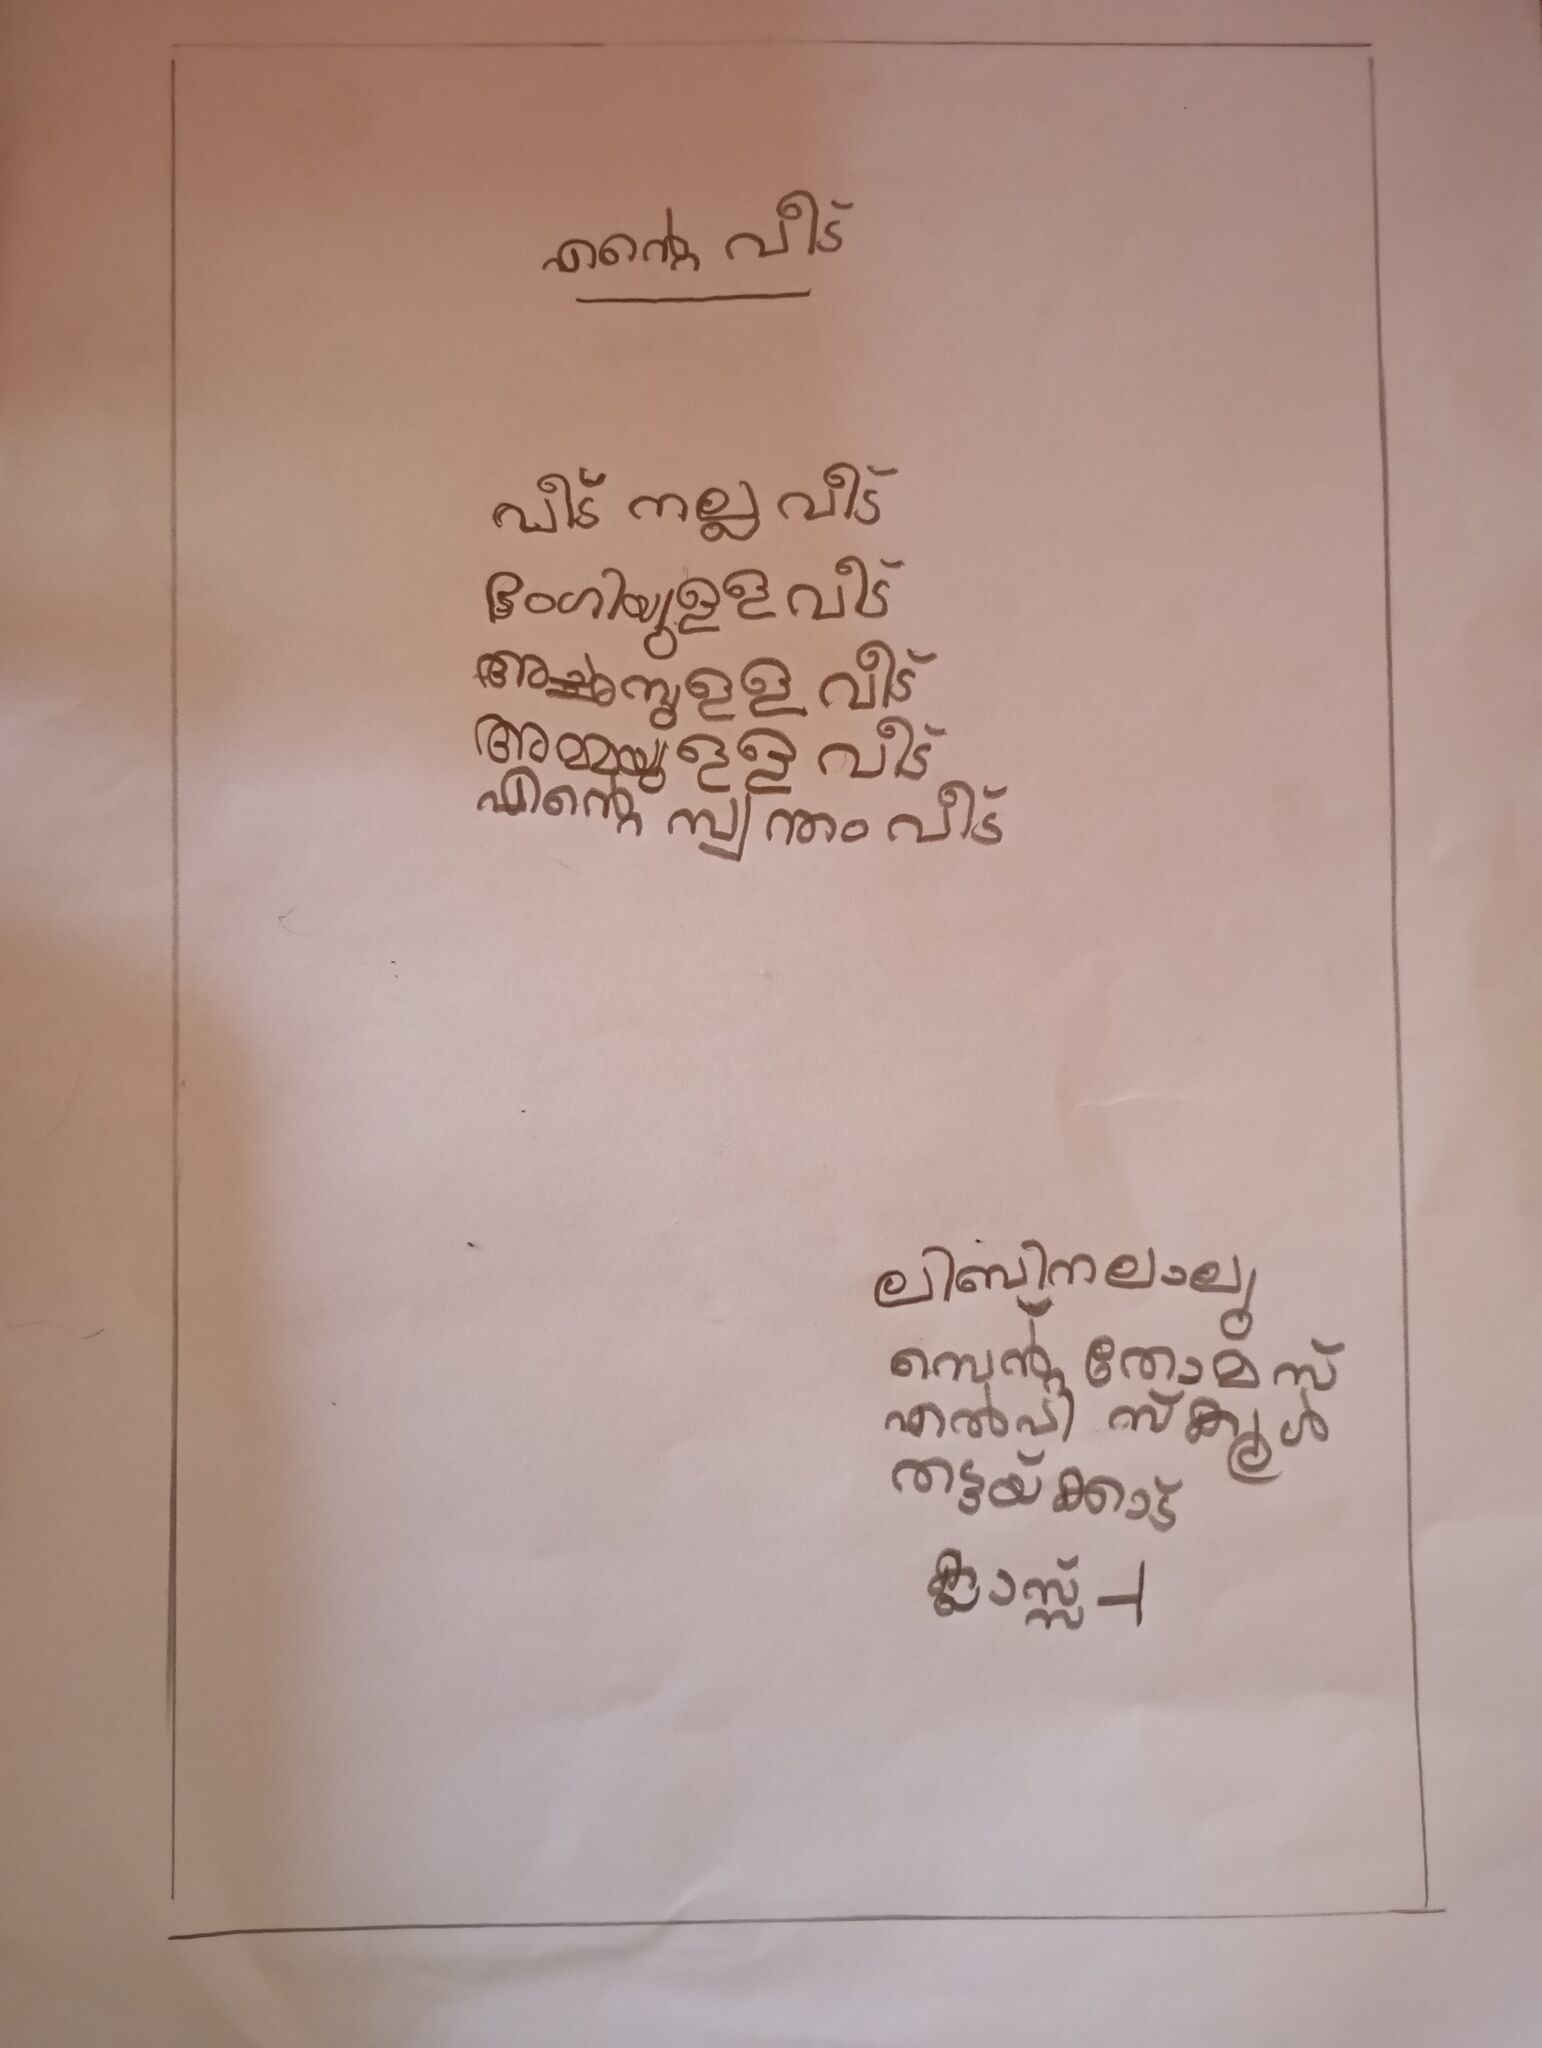 എന്റെ വീട്
വീട് നല്ല വീട്
ഭംഗിയുള്ള വീട്
അച്ഛനുള്ള വീട്
അമ്മയുള്ള വീട്
എന്റെ സ്വന്തം വീട്
ലിബിന ലാലു
സെന്റ് തോമസ്
എൽപി സ്ക്കൂൾ
തട്ടയ്ക്കാട്
ക്ലാസ്സ് -I